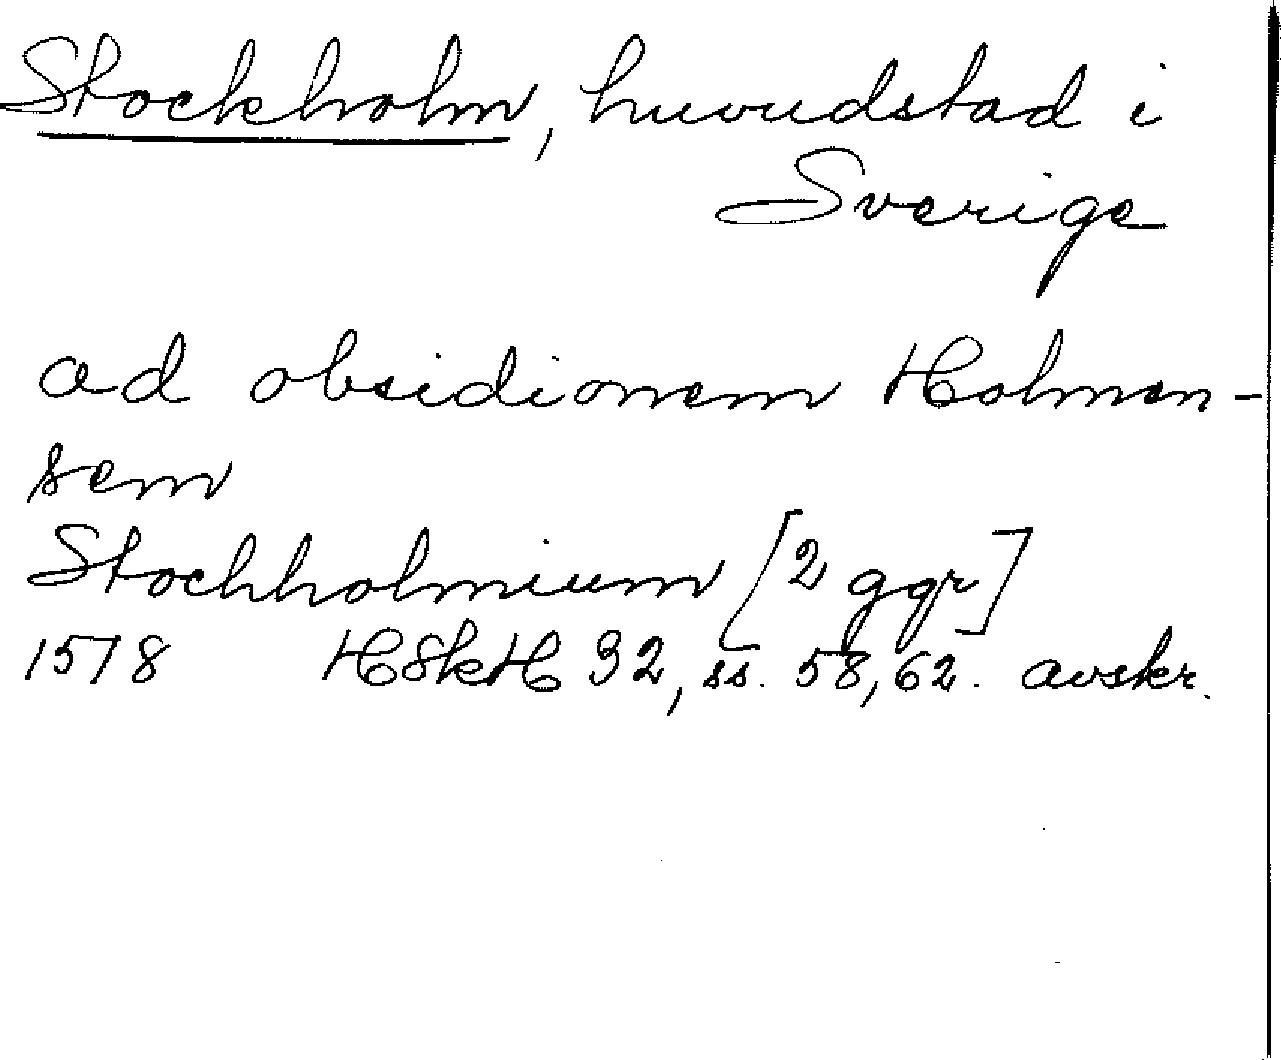 Stockholm, huvudstad i
Sverige
ad obsidionem Holmen-
sem
Stochholmium [2 ggr]
1578 HSkH 32, ss. 58, 62. avskr.